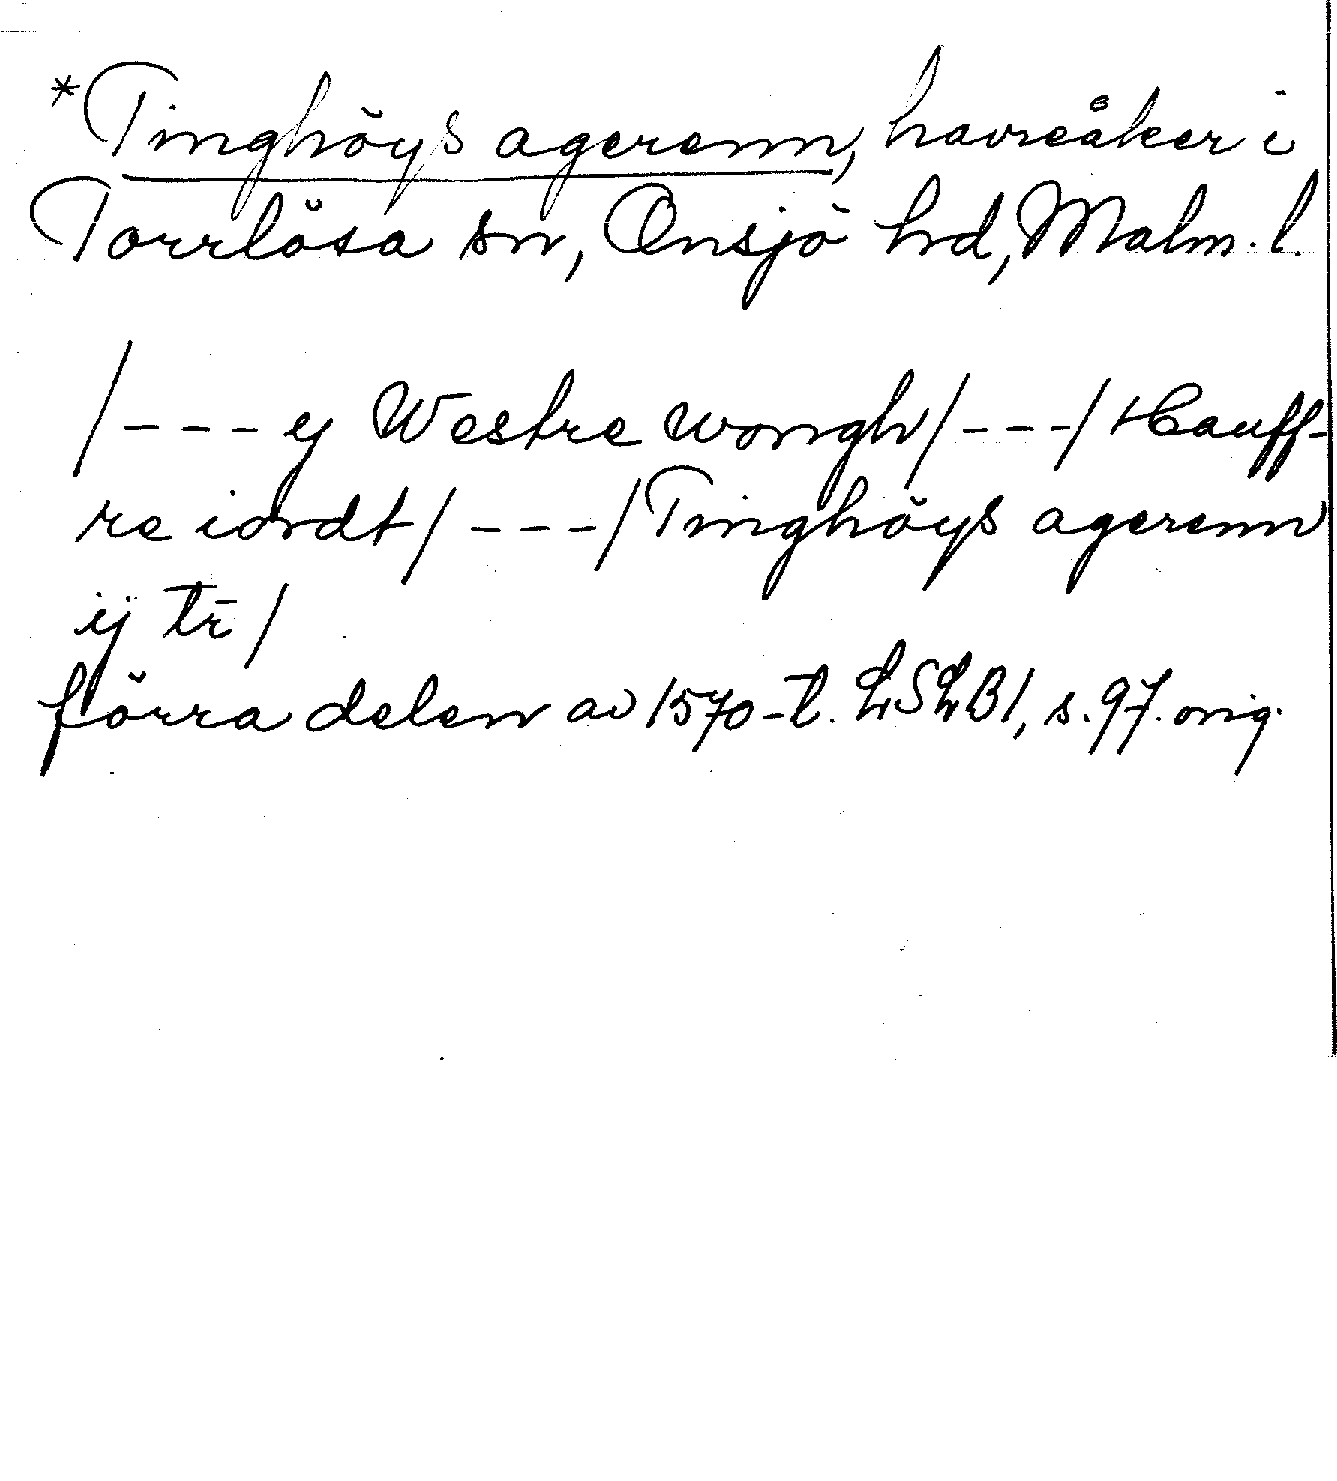 *Tinghöys agerenn, havreåker i
Torrlösa sn, Onsjö hd, Malm. l.
/--- ij Westre wongh/---/Hauff-
re iordt/---/Tinghöys agerenn
ij tr̄/
förra delen av 1570-t. LSLB1, s. 97. orig.